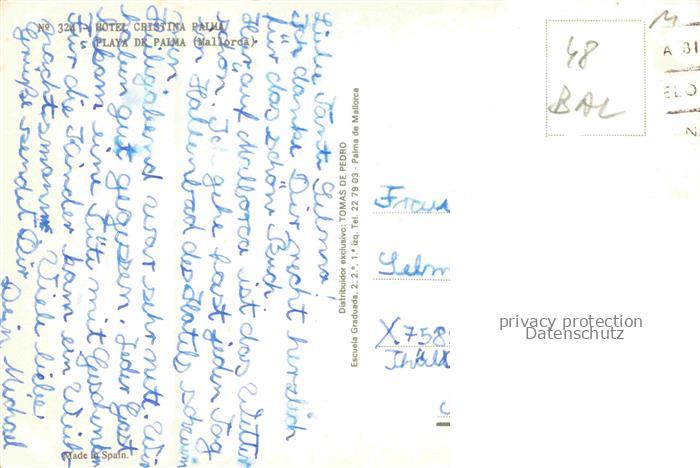 Nº 324 - HOTEL CRISTINA PALMA
PLAYA DE PALMA (Mallorca)
Liebe Tante Selma!
Ich danke Dir recht herzlich
für das schöne Buch.
Hier auf Mallorca ist das Wetter
schön. Ich gehe fast jeden Tag
im Hallenbad des Hotels schwim
men
Heiligabend war sehr nett. Wir
haben gut gegessen. Jeder Gast
bekam eine Tüte mit Geschenken
Für die Kinder kam ein Weih
nachtsmann. Viele liebe
Grüße sendet Dir
Dein Michael
Made in Spain.
Distribuidor exclusivo: TOMAS DE PEDRO
Escuela Graduada, 2, 2.º, 1.ª izq. Tel. 22 79 03 - Palma de Mallorca
48
BAL
M
A BI
ELO
N
Frau
Selm
X 758
privacy protection
Datenschutz